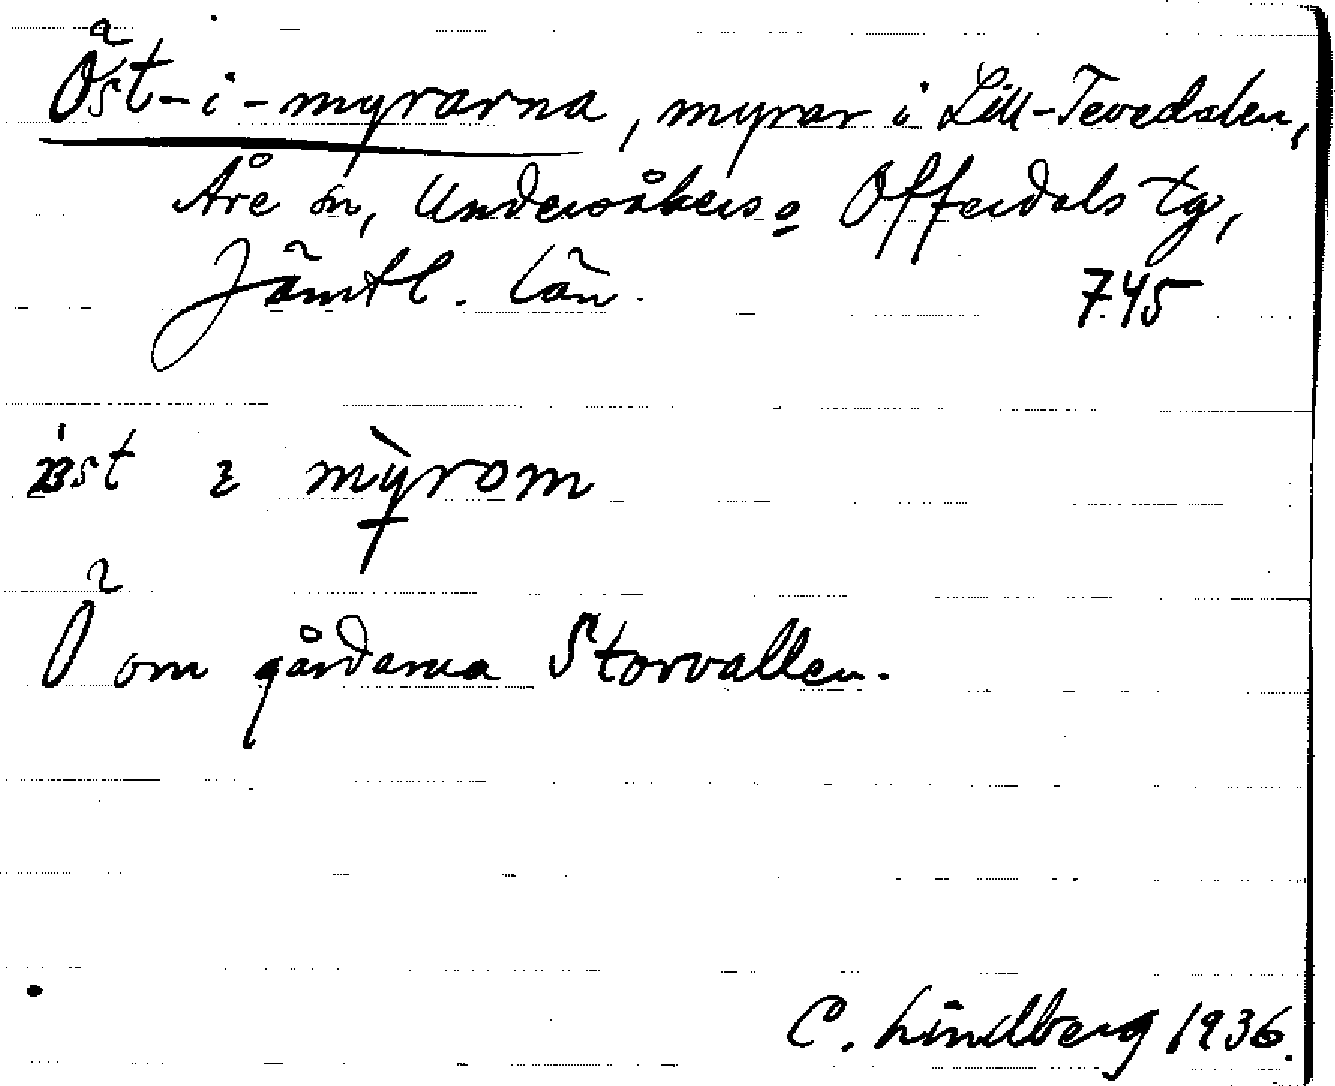 Öst-i-myrarna, myrar i Lill-Tevedalen,
Åre sn, Undersåkers o Offerdals tg,
Jämtl. län.
745
ɪ myrom
Ö om gårdarna Storvallen.
C. Lindberg 1936.